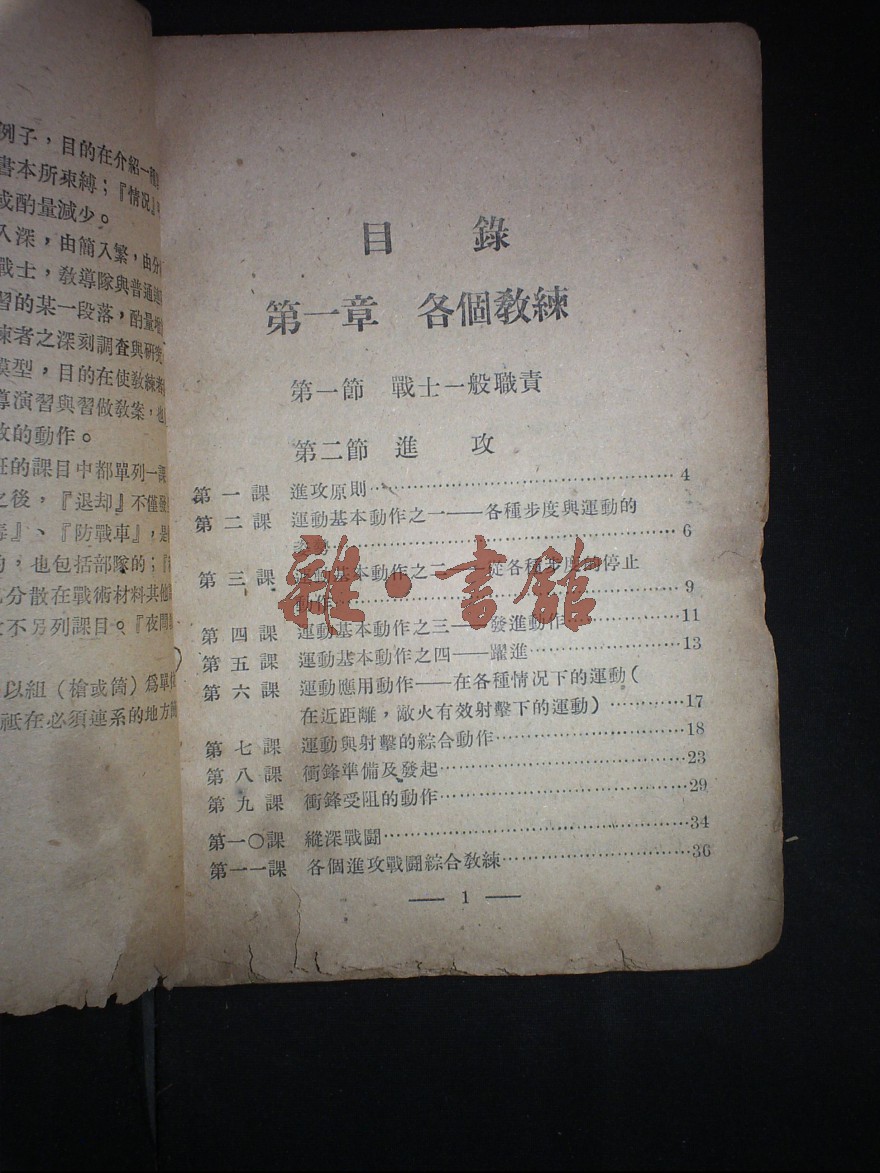 例子，目的在介紹一種
書本所束縛；『情况』
或酌量減少。
入深，由簡入繁，由分
戰士，敎導隊與普通連
習的某一段落，酌量增
練者之深刻調查與研究
模型，目的在使敎練者
導演習與習做敎案，也
放的動作。
的課目中都單列一課
之後，『退却』不僅發
毒』、『防戰車』，是
的，也包括部隊的；『
分散在戰術材料其他
不另列課目。『夜間
以組（槍或筒）爲單位
祗在必須連系的地方
目　錄
第一章　各個敎練
第一節　戰士一般職責
第二節　進　攻
第一課　進攻原則……4
第二課　運動基本動作之一——各種步度與運動的
姿勢……6
第三課　運動基本動作之二——從各種步度的停止
動作……9
第四課　運動基本動作之三——發進動作……11
第五課　運動基本動作之四——躍進……13
第六課　運動應用動作——在各種情况下的運動（
在近距離，敵火有效射擊下的運動）……17
第七課　運動與射擊的綜合動作……18
第八課　衝鋒準備及發起……23
第九課　衝鋒受阻的動作……29
第一〇課　縱深戰鬭……34
第一一課　各個進攻戰鬭綜合敎練……36
— 1 —
雜·書館